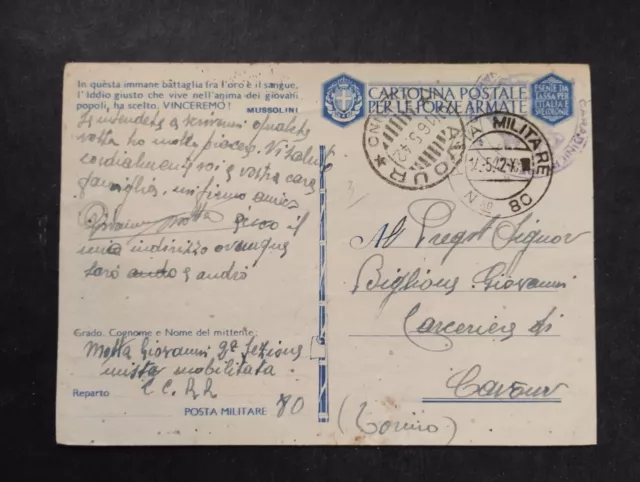 In questa immane battaglia fra l'oro e il sangue,
l'Iddio giusto che vive nell'anima dei giovani
popoli, ha scelto. VINCEREMO! MUSSOLINI
Se intendete a scrivermi qualche
volta ho molto piacere. Vi saluto
cordialmente voi e vostra cara
famiglia, mi firmo amico
Giovanni Motta ecco il
mio indirizzo ovunque
sarò ando e andrò
Grado, Cognome e Nome del mittente:
Motta Giovanni 9ª Sezione
mista mobilitata
CC. RR
Reparto
POSTA MILITARE 80
CARTOLINA POSTALE
PER LE FORZE ARMATE
ESENTE DA
TASSA PER
L'ITALIA E
SUE COLONIE
CAVOUR
16.5.42
POSTA MILITARE
.5.42
N° 80
Al Pregt Signor
Biglione Giovanni
Carceriere di
Cavour
(Torino)